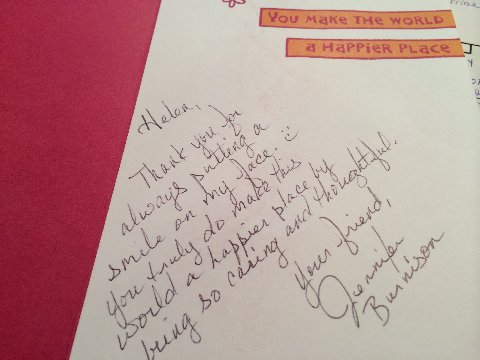 YOU MAKE THE WORLD
A HAPPIER PLACE
Helen,
Thank you for
always putting a
smile on my face. :)
you truly do make this
world a happier place by
being so caring and thoughtful.
Your friend,
Jennifer
Burnison